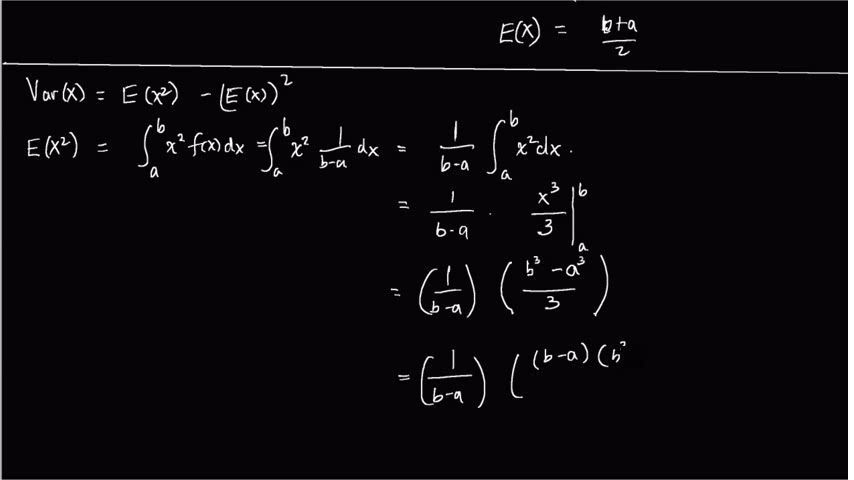 E(X) = b+a/2
Var(x) = E(x²) - (E(x))²
E(X²) = ∫_a^b x² f(x) dx = ∫_a^b x² 1/(b-a) dx = 1/(b-a) ∫_a^b x² dx.
= 1/(b-a) · x³/3 |_a^b
= (1/(b-a)) ((b³ - a³)/3)
= (1/(b-a)) ( (b-a) (b²